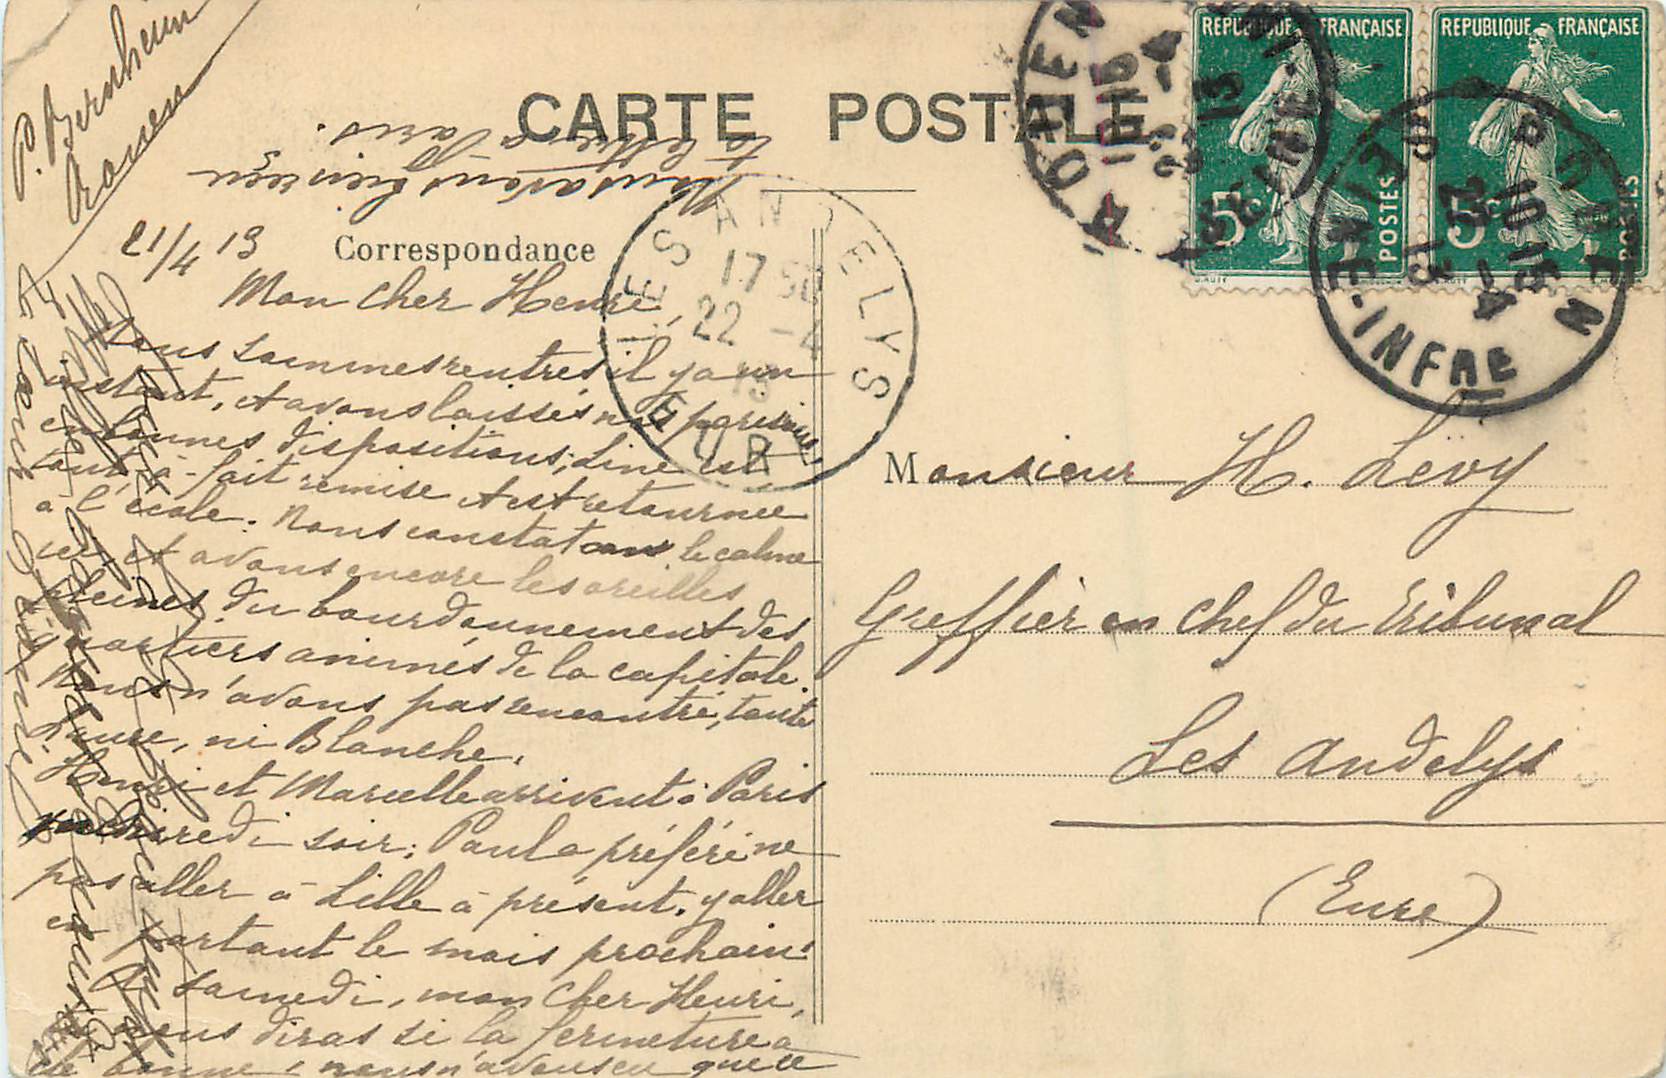 P. Bernheim
Rouen
CARTE POSTALE
Nous avons bien reçu
ta lettre à Paris.
21/4 13
Correspondance
Mon cher Henri,
Nous sommes rentrés il y a un
instant, et avons laissés nos parisiens
en bonnes dispositions; Line est
tout-à-fait remise et est retournée
à l'école. Nous constatons le calme
ici et avons encore les oreilles
pleines du bourdonnement des
quartiers animés de la capitale.
Nous n'avons pas rencontré, tante
Laure, ni Blanche.
Henri et Marcelle arrivent à Paris
vendredi soir; Paul a préféré ne
pas aller à Lille à présent, y aller
en partant le mois prochain.
A samedi, mon cher Henri,
nous diras si la fermeture a
été bonne; nous n'avons eu que ce
RÉPUBLIQUE FRANÇAISE
5c
POSTES
RÉPUBLIQUE FRANÇAISE
5c
POSTES
ROUEN
10 15
22 -4
13
SEINE-INFRE
ROUEN
10 15
22 -4
13
SEINE-INFRE
LES ANDELYS
17 50
22 -4
13
EURE
Monsieur H. Lévy
Greffier en chef du tribunal
Les Andelys
(Eure)